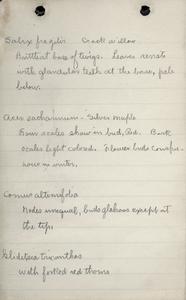 Salix fragilis Crack willow
Brittle at base of twigs. Leaves serrate
with glandular teeth at the base, pale
below.
Acer saccharinum - Silver maple
Bud scales show in bud, red. Bark
scales light colored. Flower buds conspic-
uous in winter.
Cornus alternifolia
Nodes unequal, buds glabrous except at
the tips
Gleditsia triacanthos
with forked red thorns